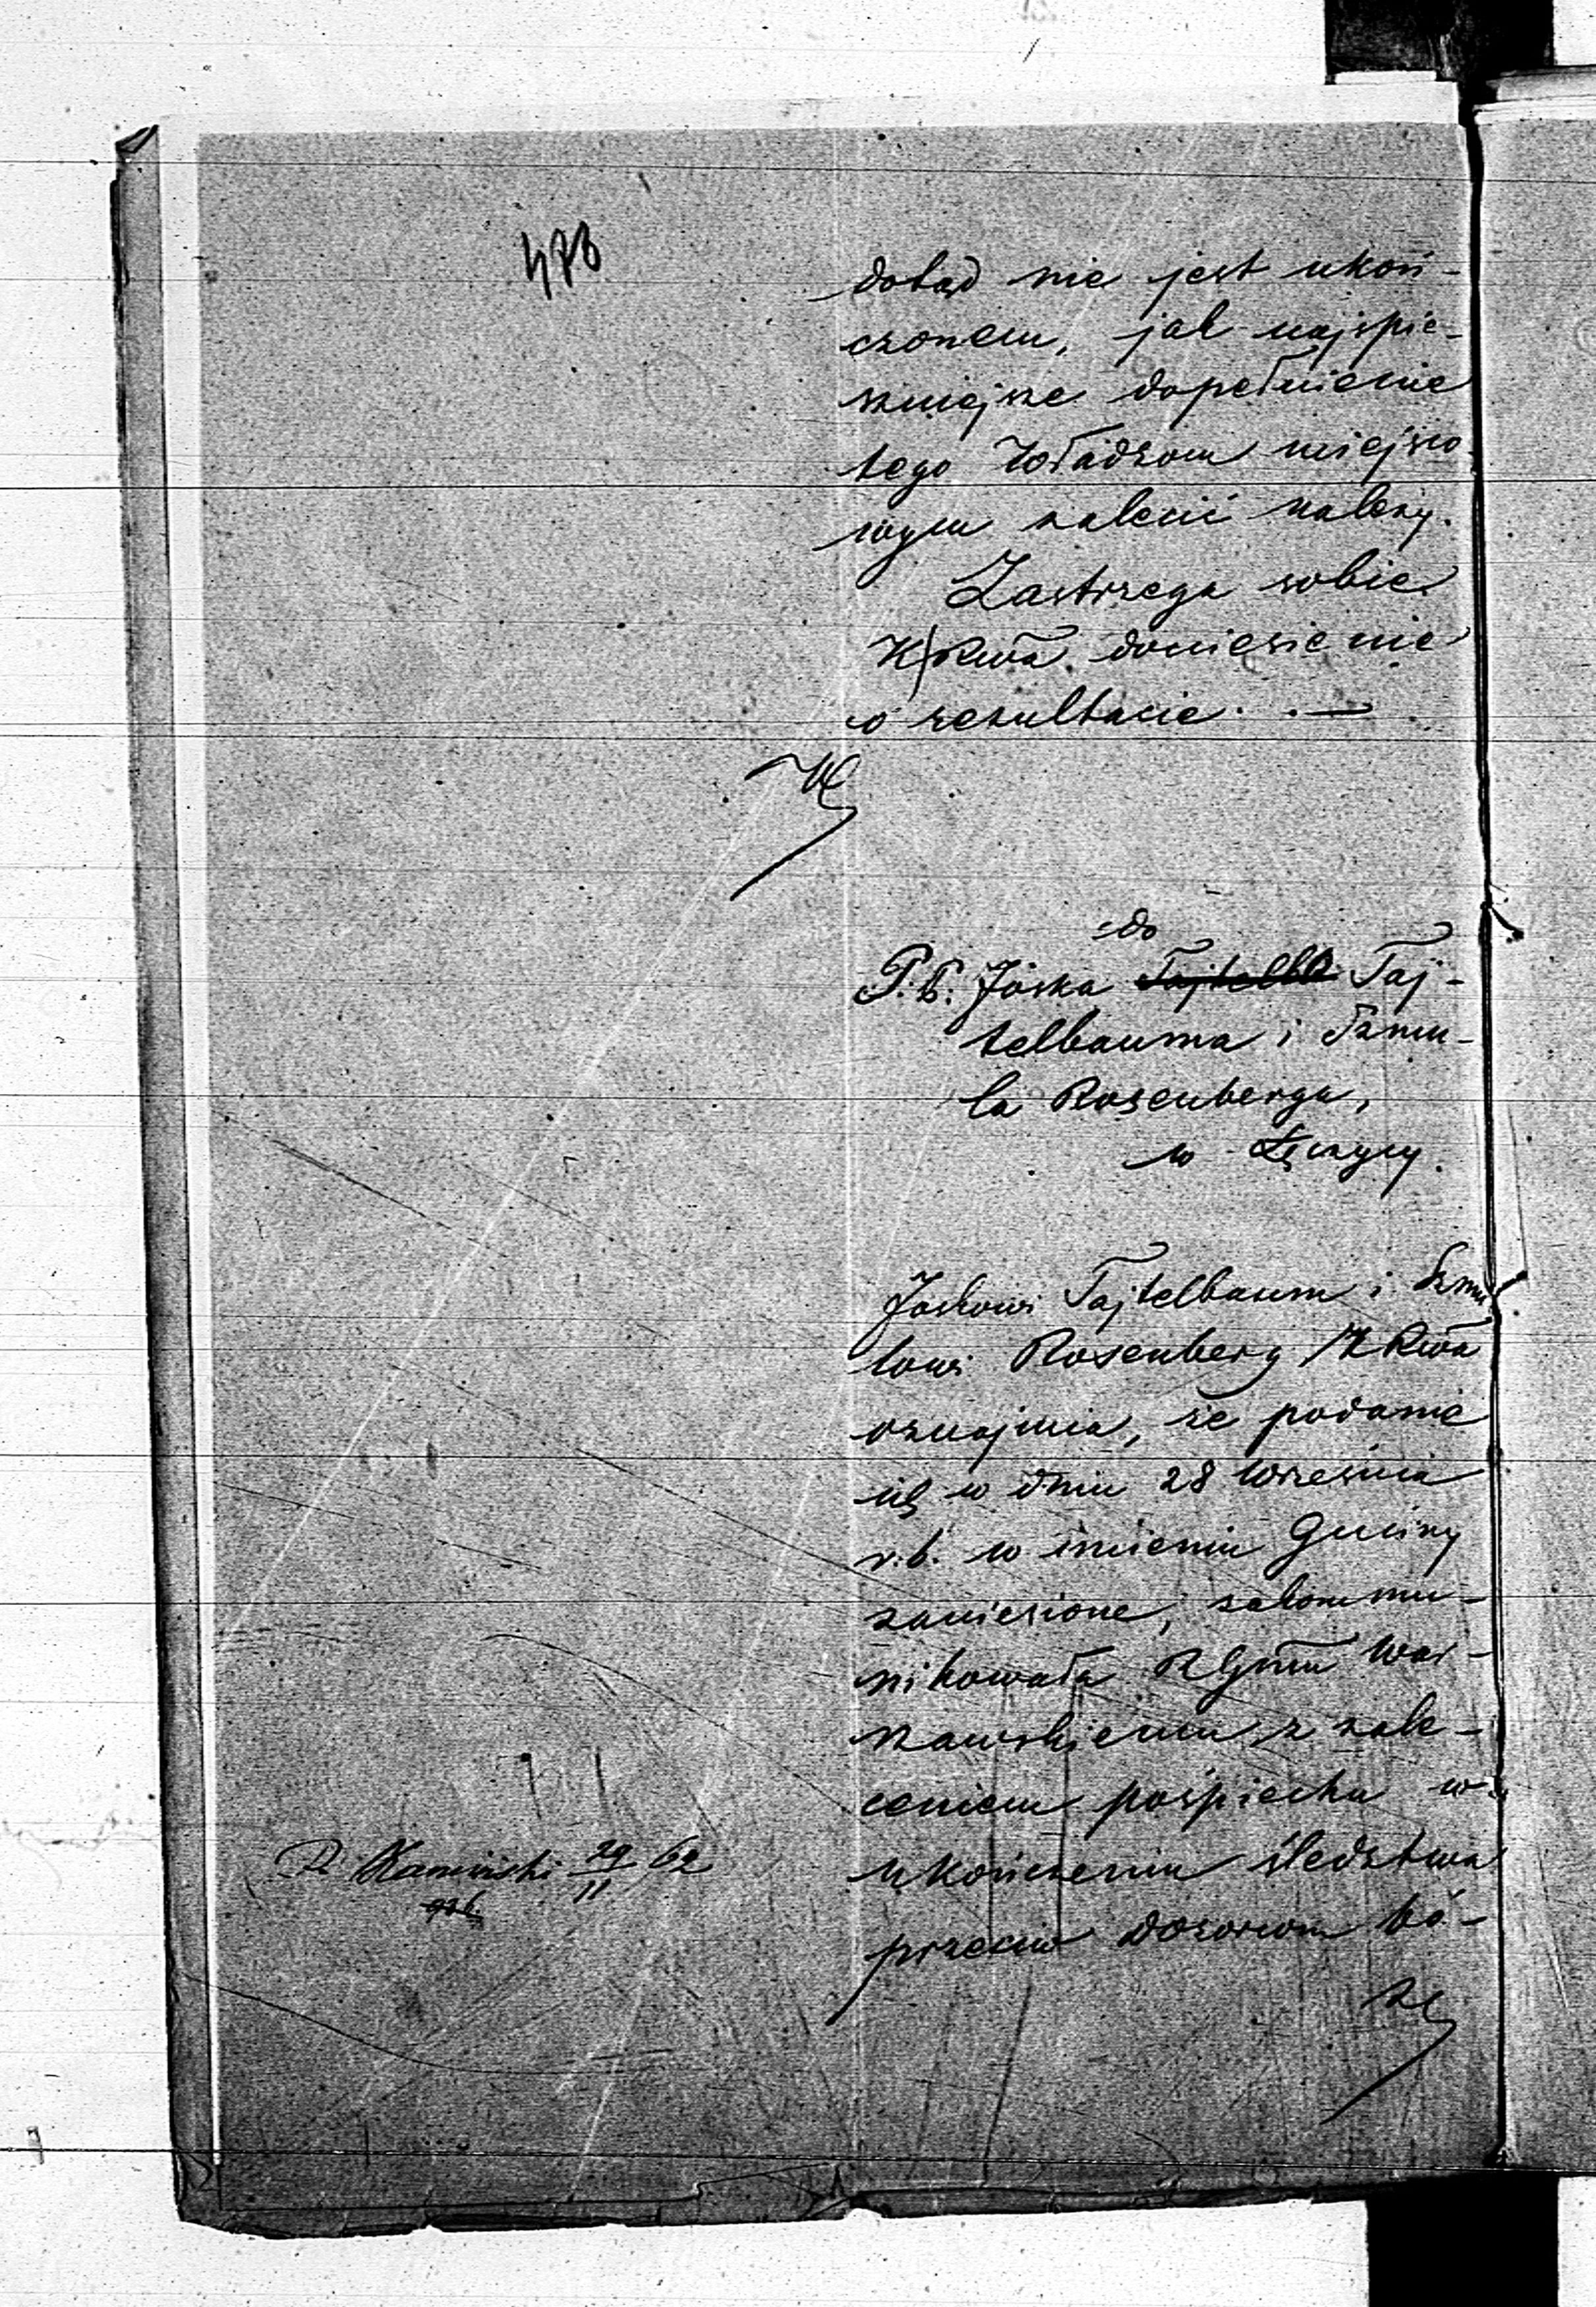 473
dotąd nie jest ukoń-
czonem, jak najspie-
szniejsze dopełnienie
tego Władzom miejsco-
wym zalecić należy.
Zastrzega sobie
KRwa doniesienie
o rezultacie. —
do
P. P. Joska Tajtelba Taj-
telbauma i Szmu-
la Rosenberga,
w Łęczycy.
Joskowi Tajtelbaum i Szmu
lowi Rosenberg KRwa
oznajmia, że podanie
ich w dniu 28 Września
r. b. w imieniu Gminy
zaniesione, zakommu-
nikowała RGnu War-
szawskiemu z zale-
ceniem pośpiechu w
ukończeniu śledztwa
przeciw dozorcom bó-
P. Kamiński 29/11 62